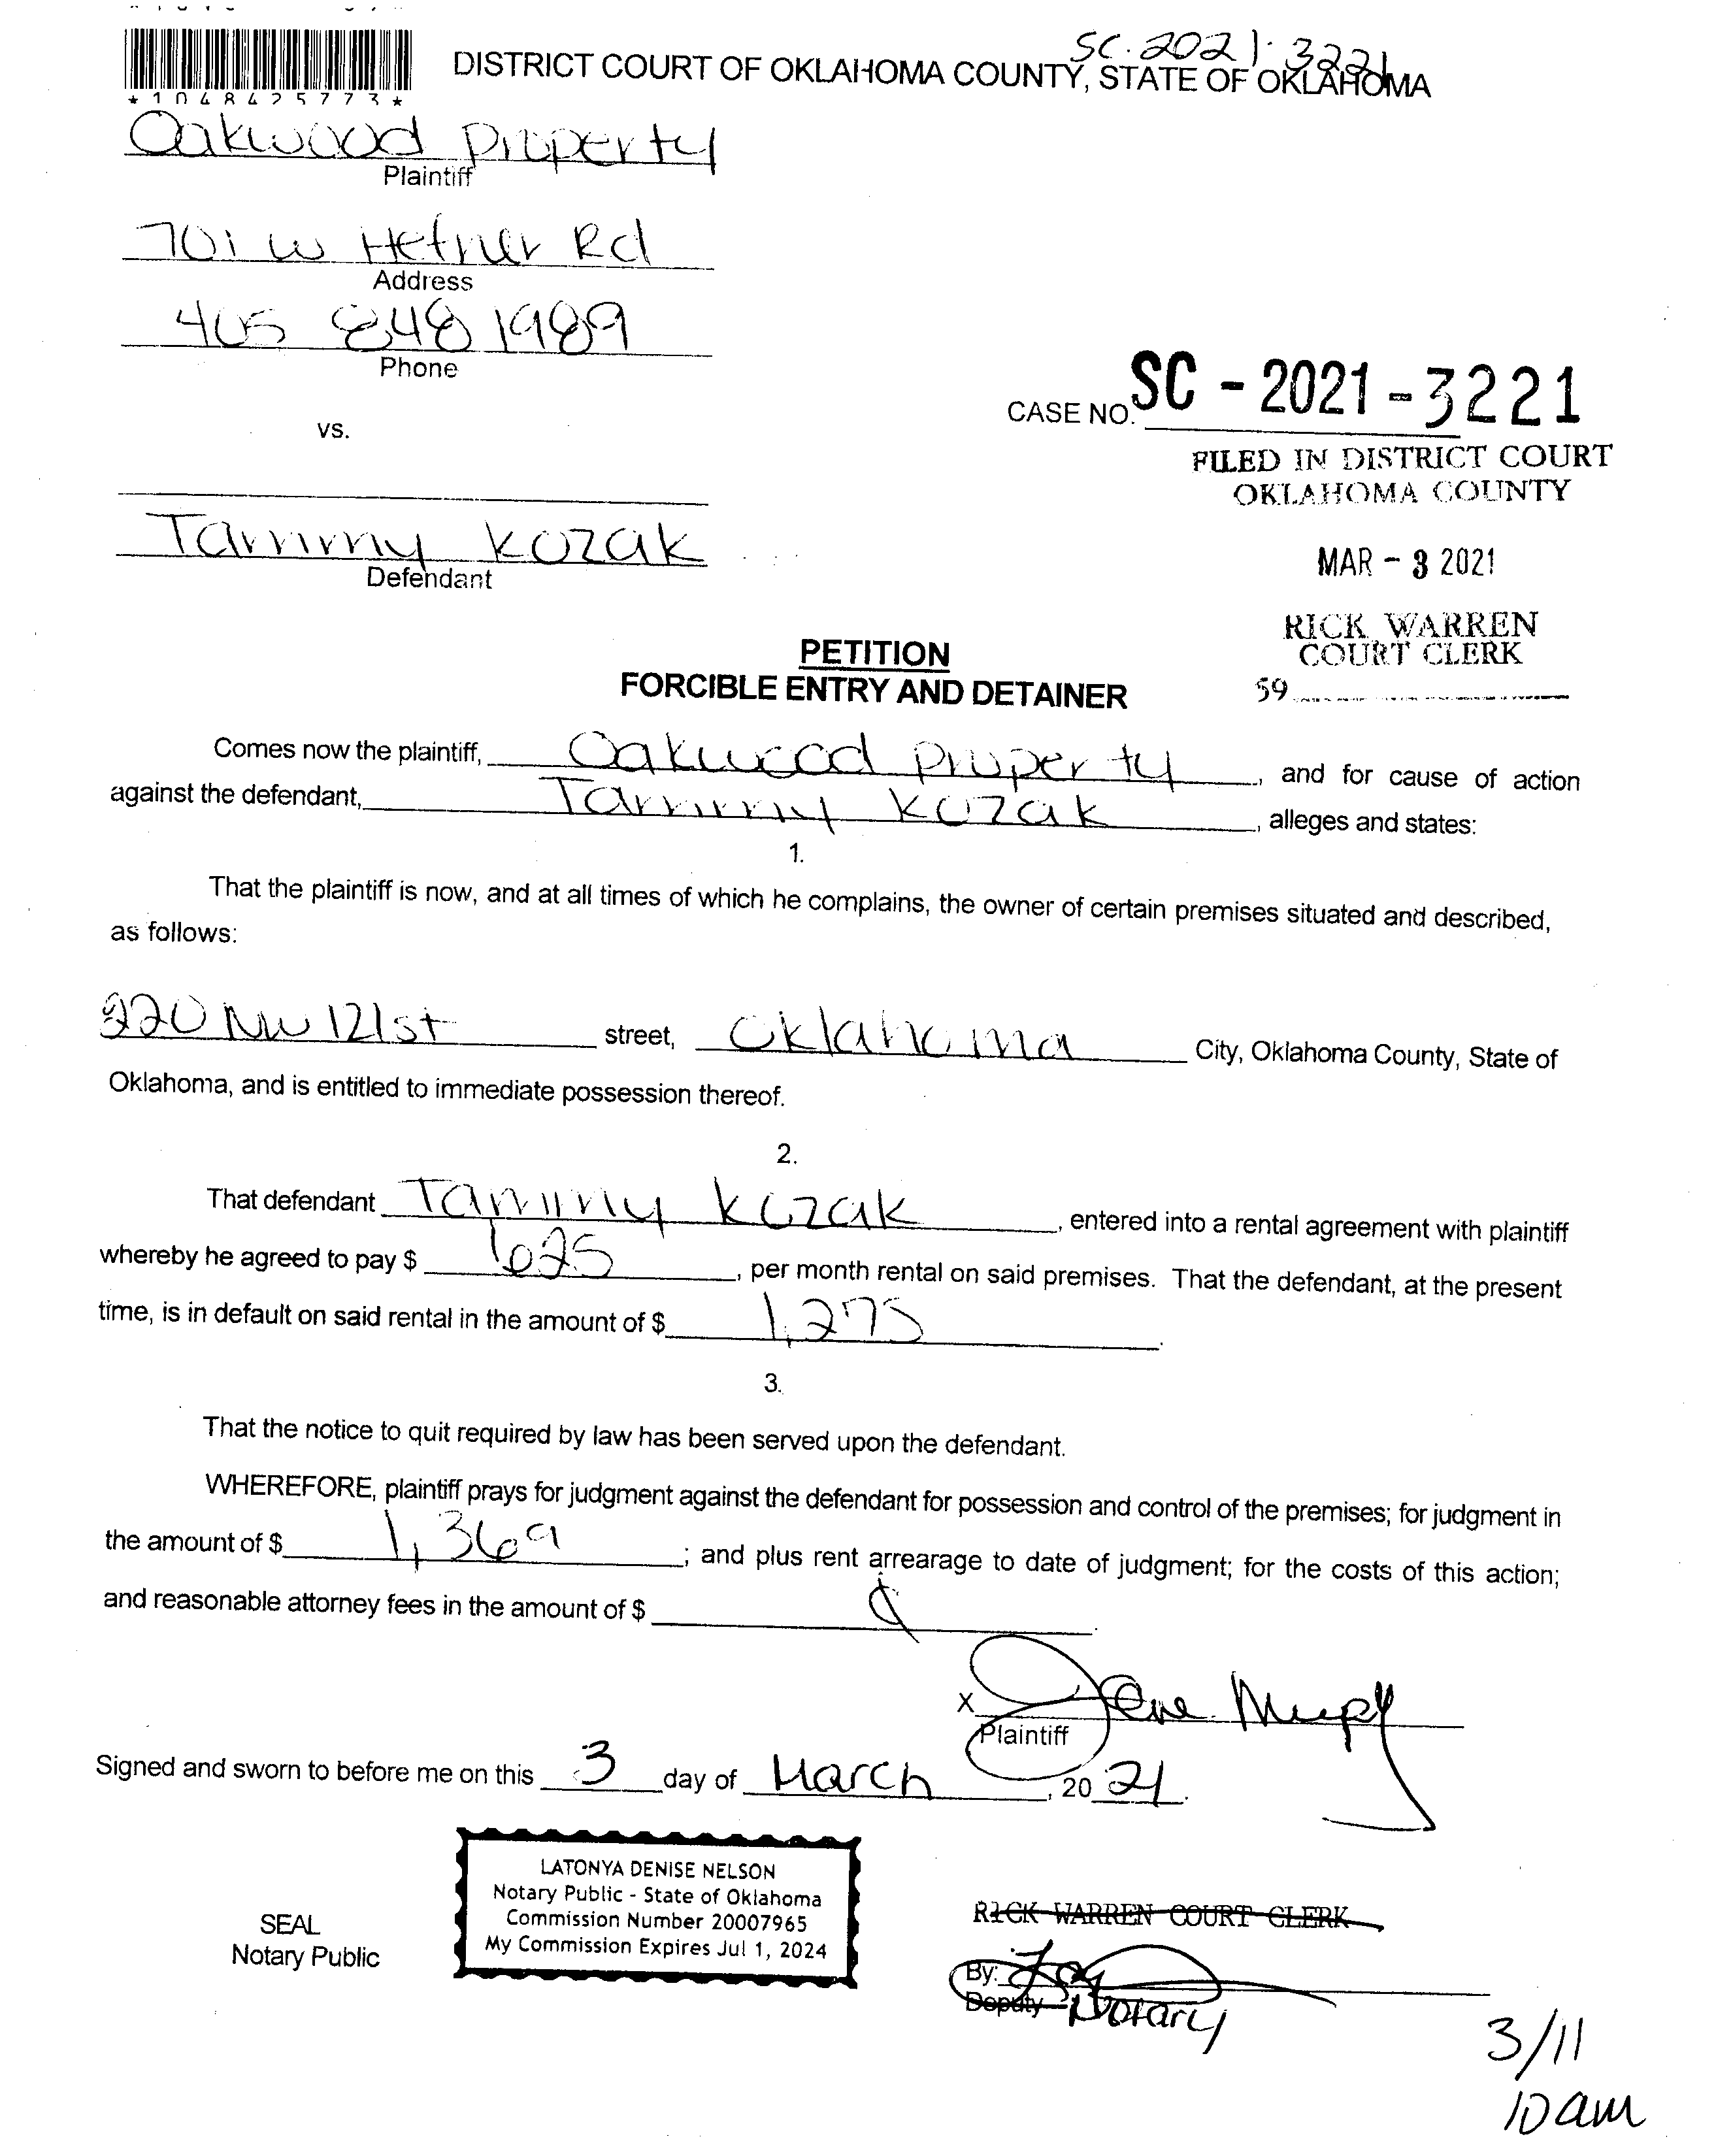 SC-2021-3221
DISTRICT COURT OF OKLAHOMA COUNTY, STATE OF OKLAHOMA
*1048425773*
Oakwood Property
Plaintiff
701 W Hefner Rd
Address
405 848 1989
Phone
CASE NO. SC - 2021 - 3221
vs.
FILED IN DISTRICT COURT
OKLAHOMA COUNTY
Tammy Kozak
Defendant
MAR - 3 2021
RICK WARREN
COURT CLERK
59
PETITION
FORCIBLE ENTRY AND DETAINER
Comes now the plaintiff, Oakwood Property, and for cause of action
against the defendant, Tammy Kozak, alleges and states:
1.
That the plaintiff is now, and at all times of which he complains, the owner of certain premises situated and described,
as follows:
220 NW 121st street, Oklahoma City, Oklahoma County, State of
Oklahoma, and is entitled to immediate possession thereof.
2.
That defendant Tammy Kozak, entered into a rental agreement with plaintiff
whereby he agreed to pay $ 625, per month rental on said premises. That the defendant, at the present
time, is in default on said rental in the amount of $ 1,275.
3.
That the notice to quit required by law has been served upon the defendant.
WHEREFORE, plaintiff prays for judgment against the defendant for possession and control of the premises; for judgment in
the amount of $ 1,369; and plus rent arrearage to date of judgment; for the costs of this action;
and reasonable attorney fees in the amount of $
X
Plaintiff
Signed and sworn to before me on this 3 day of March, 20 21.
LATONYA DENISE NELSON
Notary Public - State of Oklahoma
Commission Number 20007965
My Commission Expires Jul 1, 2024
SEAL
Notary Public
RICK WARREN COURT CLERK
By:
Deputy Notary
3/11
10am